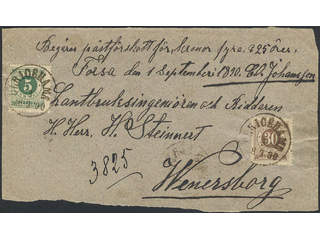 Begäres påstförskott för kronor fyra & 25 öre.
Forsa den 1 September 1890. Ed. Johansson
BJÖRDAL
5
Lantbruksingeniören och Ridderen
H. Herr. W. Steinnert
30
3825
Wenersborg